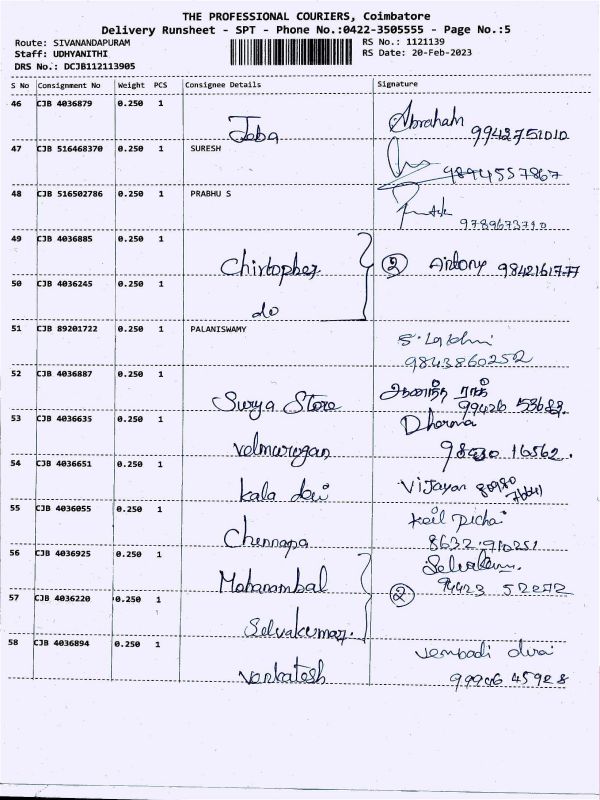 THE PROFESSIONAL COURIERS, Coimbatore
Delivery Runsheet - SPT - Phone No.:0422-3505555 - Page No.:5
Route: SIVANANDAPURAM RS No.: 1121139
Staff: UDHYANITHI RS Date: 20-Feb-2023
DRS No.: DCJB112113905
S No Consignment No Weight PCS Consignee Details Signature
46 CJB 4036879 0.250 1
Joba Abraham 9942751010
47 CJB 516468370 0.250 1 SURESH
9894557867
48 CJB 516502786 0.250 1 PRABHU S
9789673710
49 CJB 4036885 0.250 1
Chirtopher ② Antony 9842161777
50 CJB 4036245 0.250 1
do
51 CJB 89201722 0.250 1 PALANISWAMY
9843860252
52 CJB 4036887 0.250 1
Surya Store 99426
53 CJB 4036635 0.250 1 Dharma
Velmurogan 16562.
54 CJB 4036651 0.250 1
Kala devi Vijayan
55 CJB 4036055 0.250 1
Chennapa 8632 910251
56 CJB 4036925 0.250 1
Mohanambal ② 52272
57 CJB 4036220 0.250 1
Selvakumar.
58 CJB 4036894 0.250 1
Venkatesh 45928